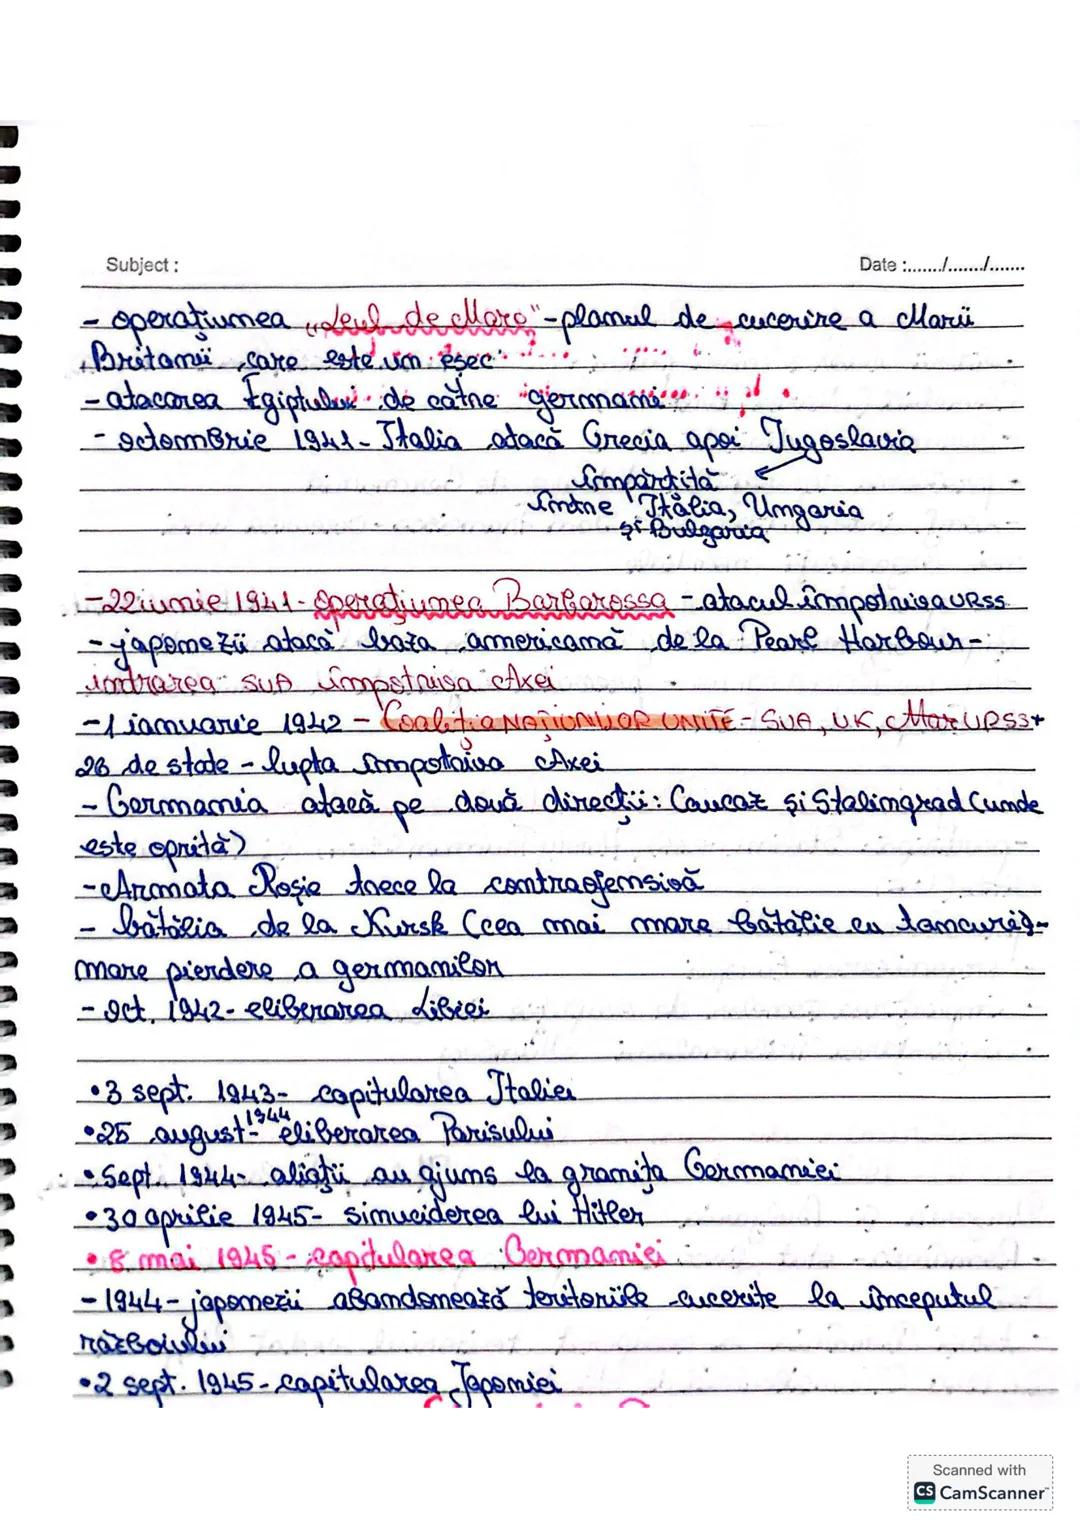 Subject :
Date :......./......./.......
- operațiunea „Leul de Mare"-planul de cucerire a Marii
Britanii care este un eșec
- atacarea Egiptului de către germani
- octombrie 1941- Italia atacă Grecia apoi Iugoslavia
împărțită
între Italia, Ungaria
și Bulgaria
-22 iunie 1941- operațiunea Barbarossa - atacul împotriva URSS
- japonezii atacă baza americană de la Pearl Harbour-
intrarea SUA împotriva Axei
-1 ianuarie 1942 - Coaliția NAȚIUNILOR UNITE - SUA, UK, Mar URSS+
26 de state - lupta împotriva Axei
- Germania atacă pe două direcții: Caucaz și Stalingrad (unde
este oprită)
- Armata Roșie trece la contraofensivă
- bătălia de la Kursk (cea mai mare bătălie cu tancuri)-
mare pierdere a germanilor
- Oct. 1942- eliberarea Libiei
•3 sept. 1943- capitularea Italiei
•25 august 1944- eliberarea Parisului
• Sept. 1944- aliații au ajuns la granița Germaniei
•30 aprilie 1945- sinuciderea lui Hitler
• 8 mai 1945 - capitularea Germaniei
- 1944- japonezii abandonează teritoriile cucerite la începutul
războiului
•2 sept. 1945- capitularea Japoniei
Scanned with
CS CamScanner